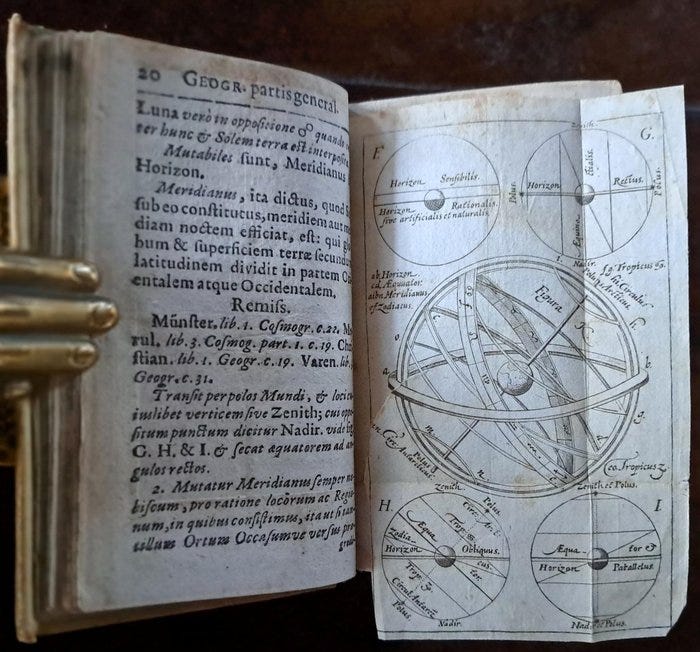 20 GEOGR. partis general.
Luna vero in oppositione ☍ quando
ter hunc & Solem terra est interposita
Mutabiles sunt, Meridianus
Horizon.
Meridianus, ita dictus, quod
sub eo constitutus, meridiem aut
diam noctem efficiat, est: qui
bum & superficiem terræ secundum
latitudinem dividit in partem
entalem atque Occidentalem.
Remiss.
Münster. lib. 1. Cosmogr. c. 22.
rul. lib. 3. Cosmog. part. 1. c. 19.
stian. lib. 1. Geogr. c. 19. Varen. lib.
Geogr. c. 31.
Transit per polos Mundi, & loci
iuslibet verticem sive Zenith; cui
situm punctum dicitur Nadir. vide
G. H. & I. & secat æquatorem ad
gulos rectos.
2. Mutatur Meridianus semper
biscum, pro ratione locorum ac
num, in quibus consistimus, ita ut
illum Ortum Occasumve versus
F
Horizon Sensibilis.
Horizon Rationalis
sive artificialis et naturalis.
G.
Zenith.
Polus.
Horizon Rectus.
Polus.
Nadir.
ab Horizon
cd Æquator
aibn Meridianus
ef Zodiacus
I.
fg Tropicus ♋
Circulus
Polus Arcticus
Figura
a
b
c
g
Circ. Antarcticus
Polus
n
eo. Tropicus
H.
Zenith
Polus
Circ. Arct.
Æqua
Trop. ♋
zodia
Horizon Obliquus.
cus
tor
Trop. ♑
Circul. Antarct
Polus
Nadir.
I
Zenith et Polus.
Æqua tor &
Horizon Parallelus.
Nad. Polus.